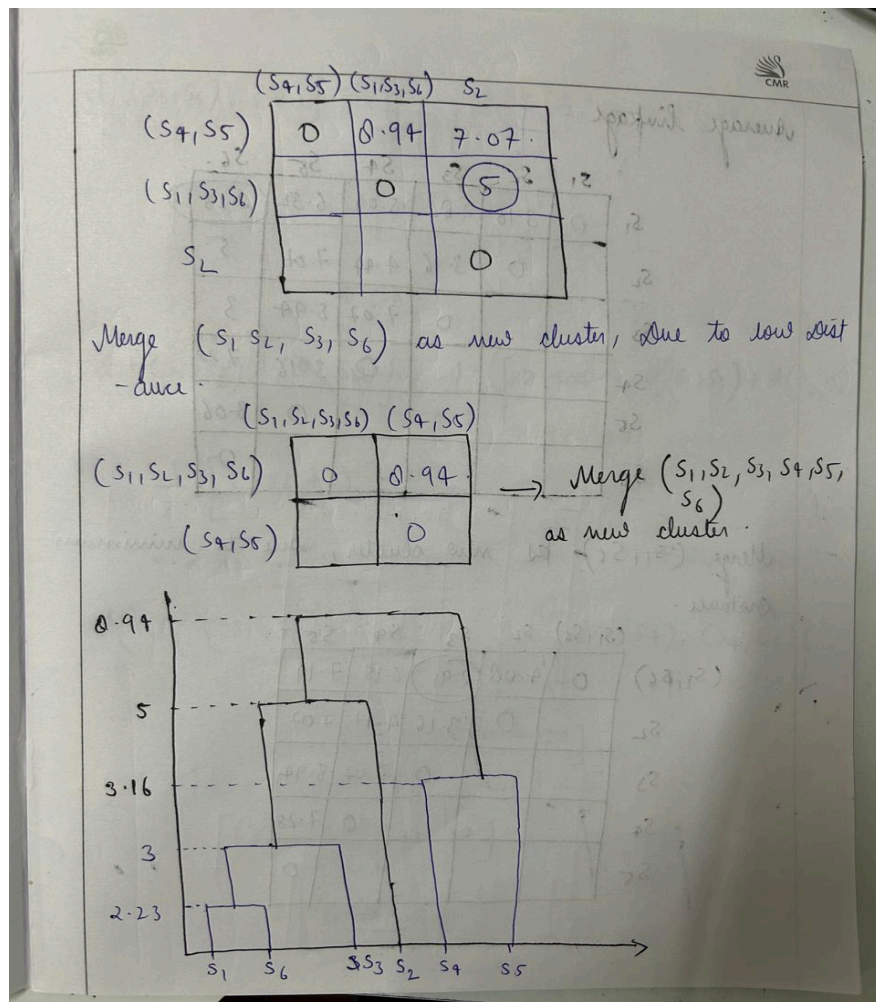 CMR
(S4,S5) (S1,S3,S6) S2
(S4,S5) 0 8.94 7.07.
(S1,S3,S6) 0 5
S2 0
Merge (S1 S2, S3, S6) as new cluster, Due to low Dist
-ance.
(S1,S2,S3,S6) (S4,S5)
(S1,S2,S3,S6) 0 8.94 → Merge (S1,S2,S3,S4,S5,
S6)
(S4,S5) 0 as new cluster.
8.94
5
3.16
3
2.23
S1 S6 S3 S2 S4 S5